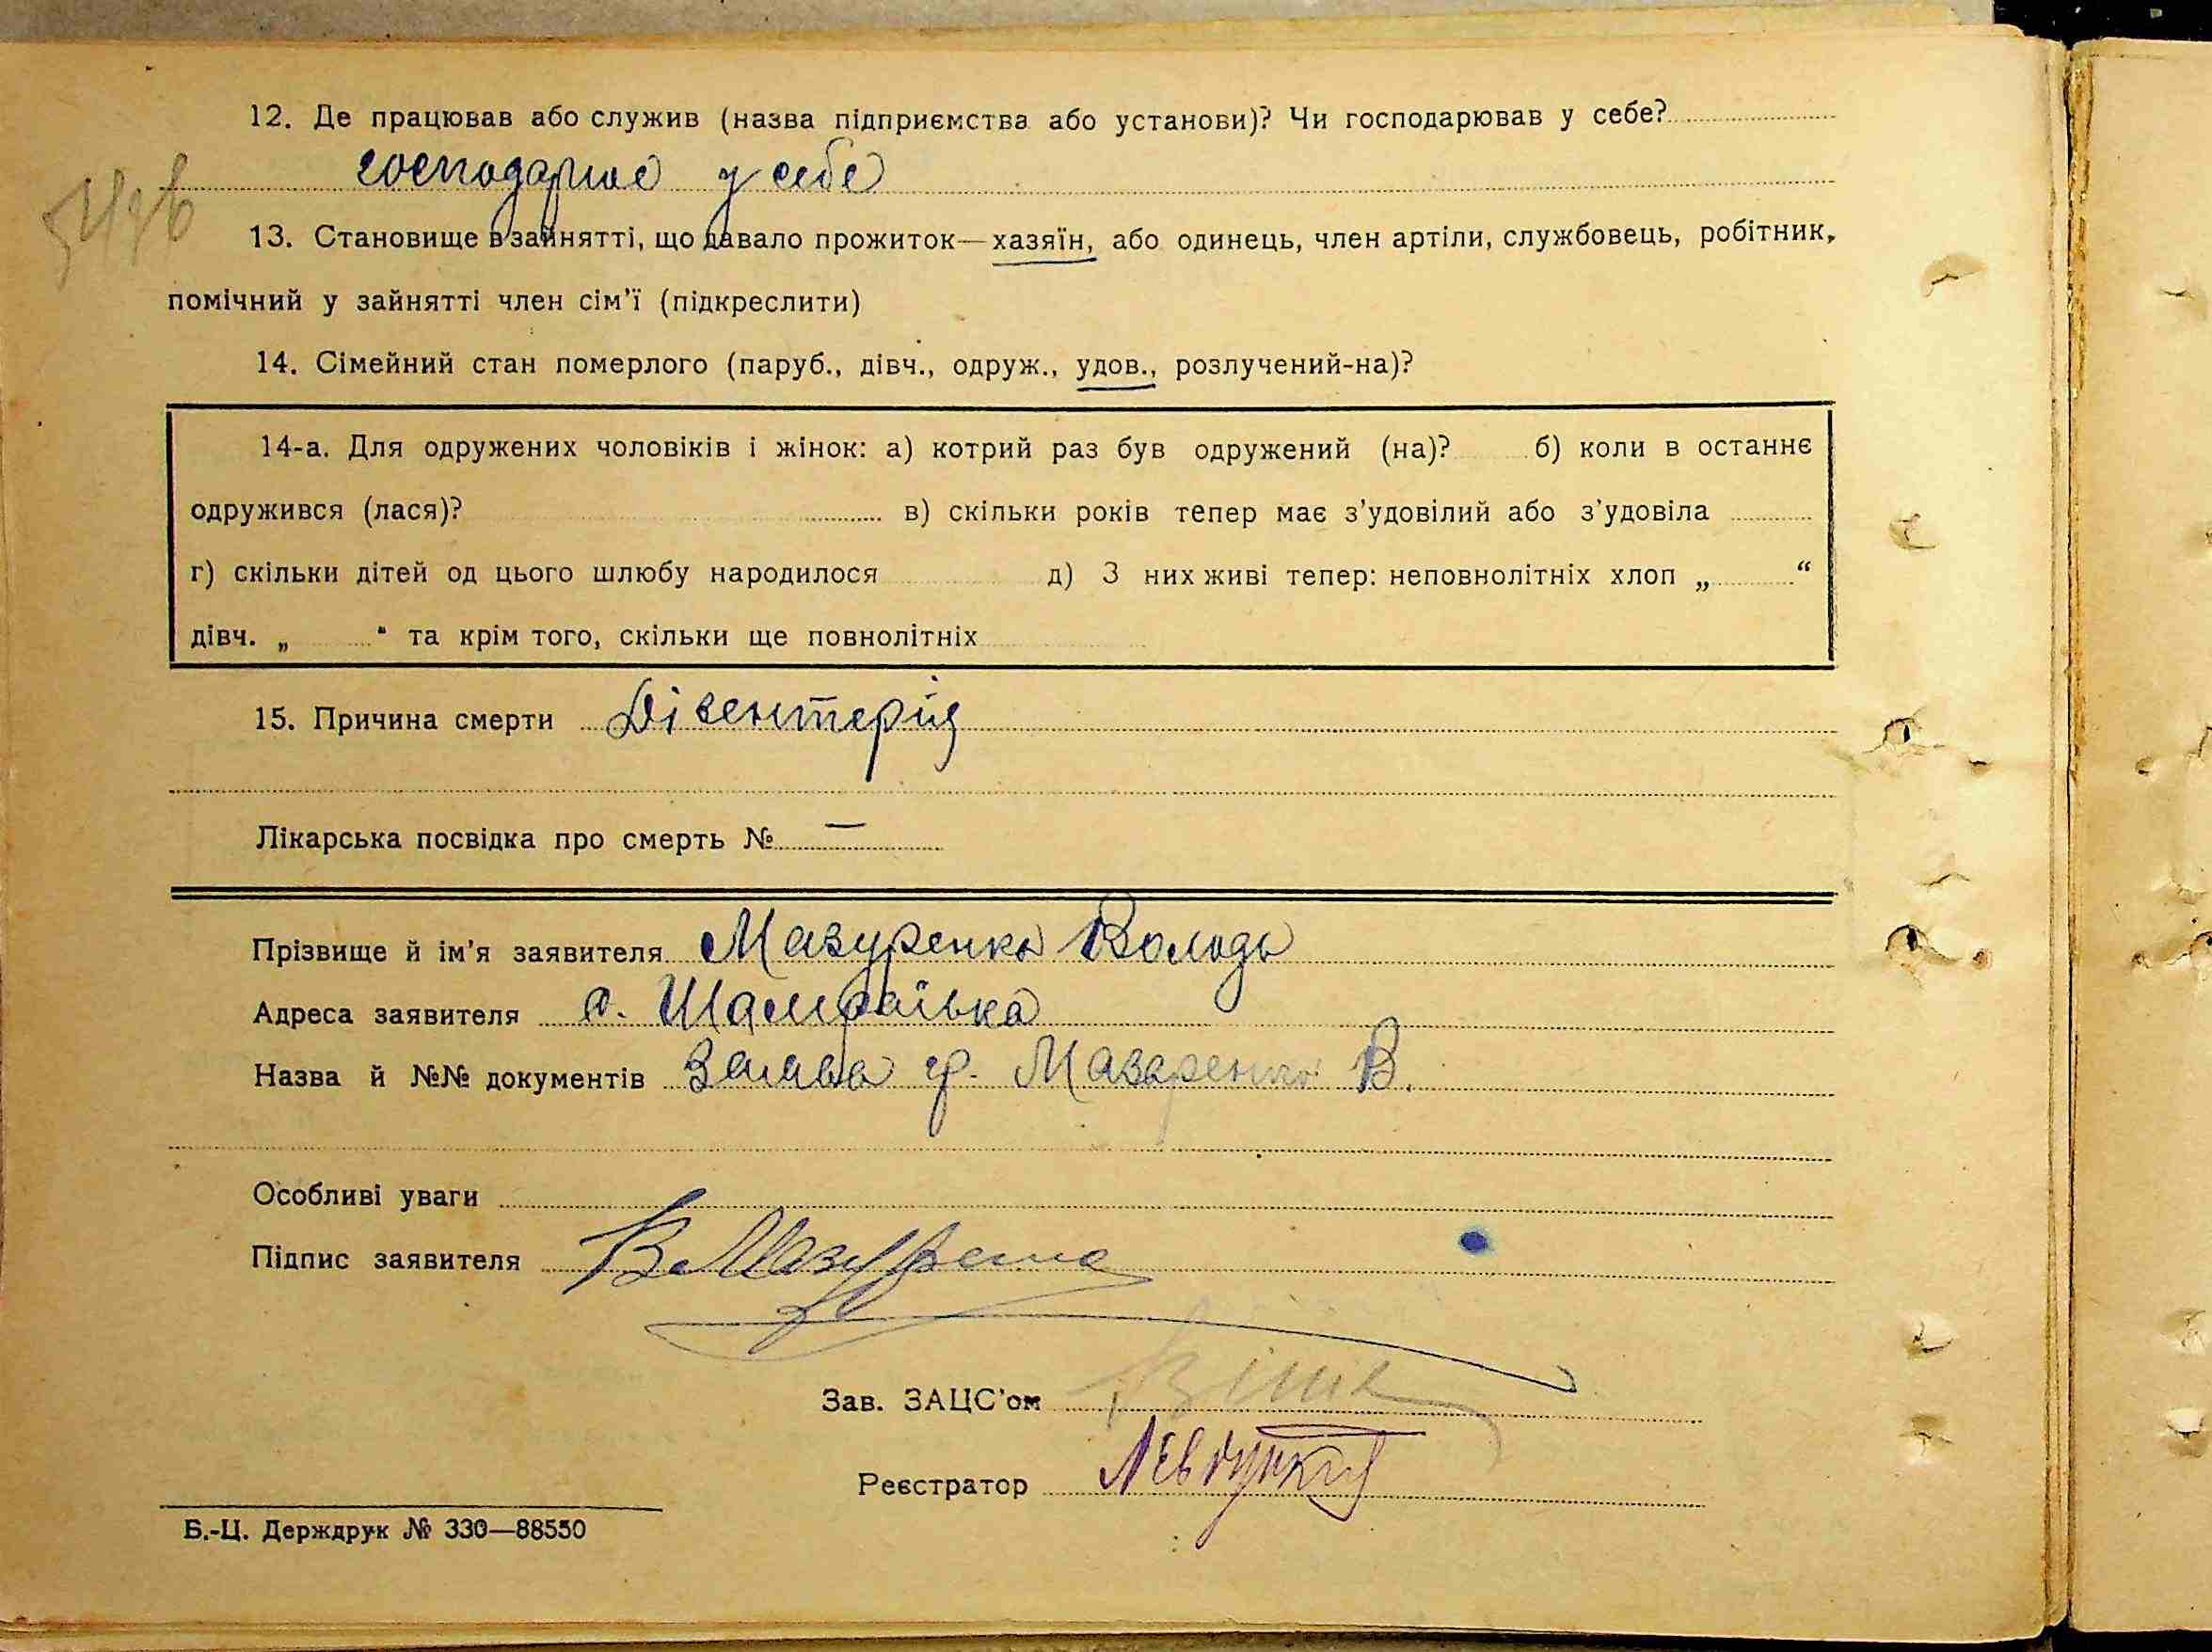 12. Де працював або служив (назва підприємства або установи)? Чи господарював у себе?
господарює у себе
13. Становище в занятті, що давало прожиток—хазяїн, або одинець, член артіли, службовець, робітник,
помічний у зайнятті член сім'ї (підкреслити)
14. Сімейний стан померлого (паруб., дівч., одруж., удов., розлучений-на)?
14-а. Для одружених чоловіків і жінок: а) котрий раз був одружений (на)? б) коли в останнє
одружився (лася)? в) скільки років тепер має з'удовілий або з'удовіла
г) скільки дітей од цього шлюбу народилося д) З них живі тепер: неповнолітніх хлоп „ “
дівч. „ “ та крім того, скільки ще повнолітніх
15. Причина смерти Дізентерія
Лікарська посвідка про смерть № —
Прізвище й ім'я заявителя Мазуренко Володь
Адреса заявителя с. Шамраївка
Назва й №№ документів Заява гр. Мазуренко В.
Особливі уваги
Підпис заявителя В Мазуренко
Зав. ЗАЦС'ом
Реєстратор
Б.-Ц. Держдрук № 330—88550